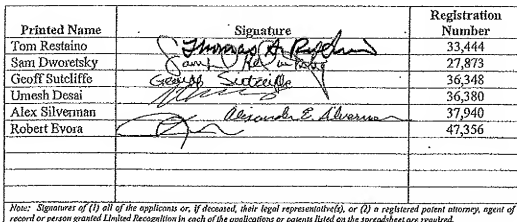 Printed Name Signature Registration Number
Tom Restaino Thomas A. Restaino 33,444
Sam Dworetsky 27,873
Geoff Sutcliffe George Sutcliffe 36,348
Umesh Desai 36,380
Alex Silverman Alexander E. Silverman 37,940
Robert Evora 47,356
Note: Signatures of (1) all of the applicants or, if deceased, their legal representative(s), or (2) a registered patent attorney, agent of
record or person granted Limited Recognition in each of the applications or patents listed on the spreadsheet are required.